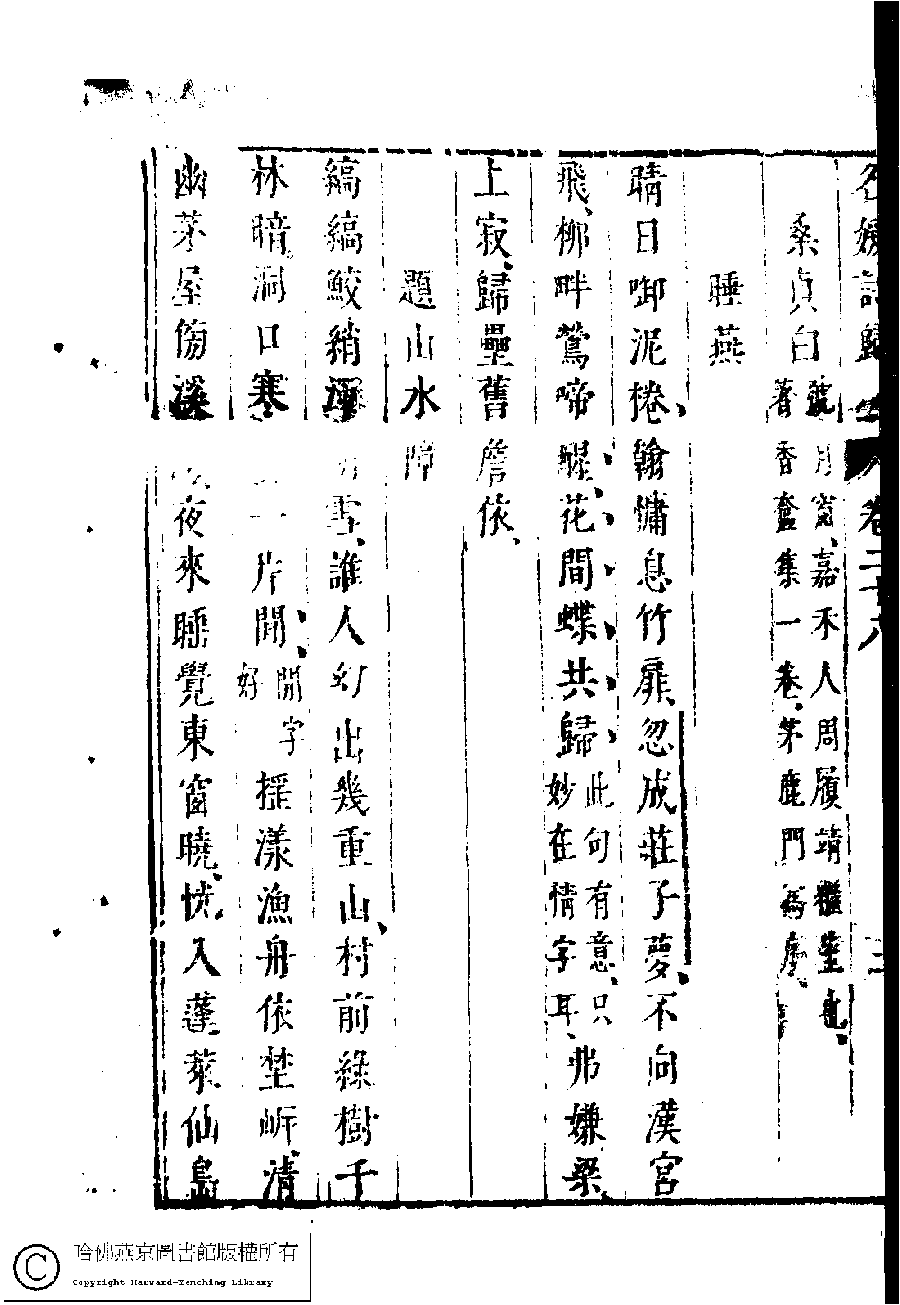 名媛詩歸 卷二十八
桑貞白 號月窗嘉禾人周履靖繼室也
著香奩集一卷茅鹿門為序
睡燕
晴日啣泥捲翰慵息竹扉忽成莊子夢不向漢宮
飛柳畔鶯啼醒花間蝶共歸 此句有意只妙在情字耳 弗嫌梁
上寂歸壘舊詹依
題山水障
縞縞鮫綃 雪誰人幻出幾重山村前綠樹千
林暗洞口寒 一片閒 閒字好 搖漾漁舟依埜岍清
幽茅屋傍溪 夜來睡覺東窗曉恍入蓬萊仙島
哈佛燕京圖書館版權所有
Copyright Harvard-Yenching Library